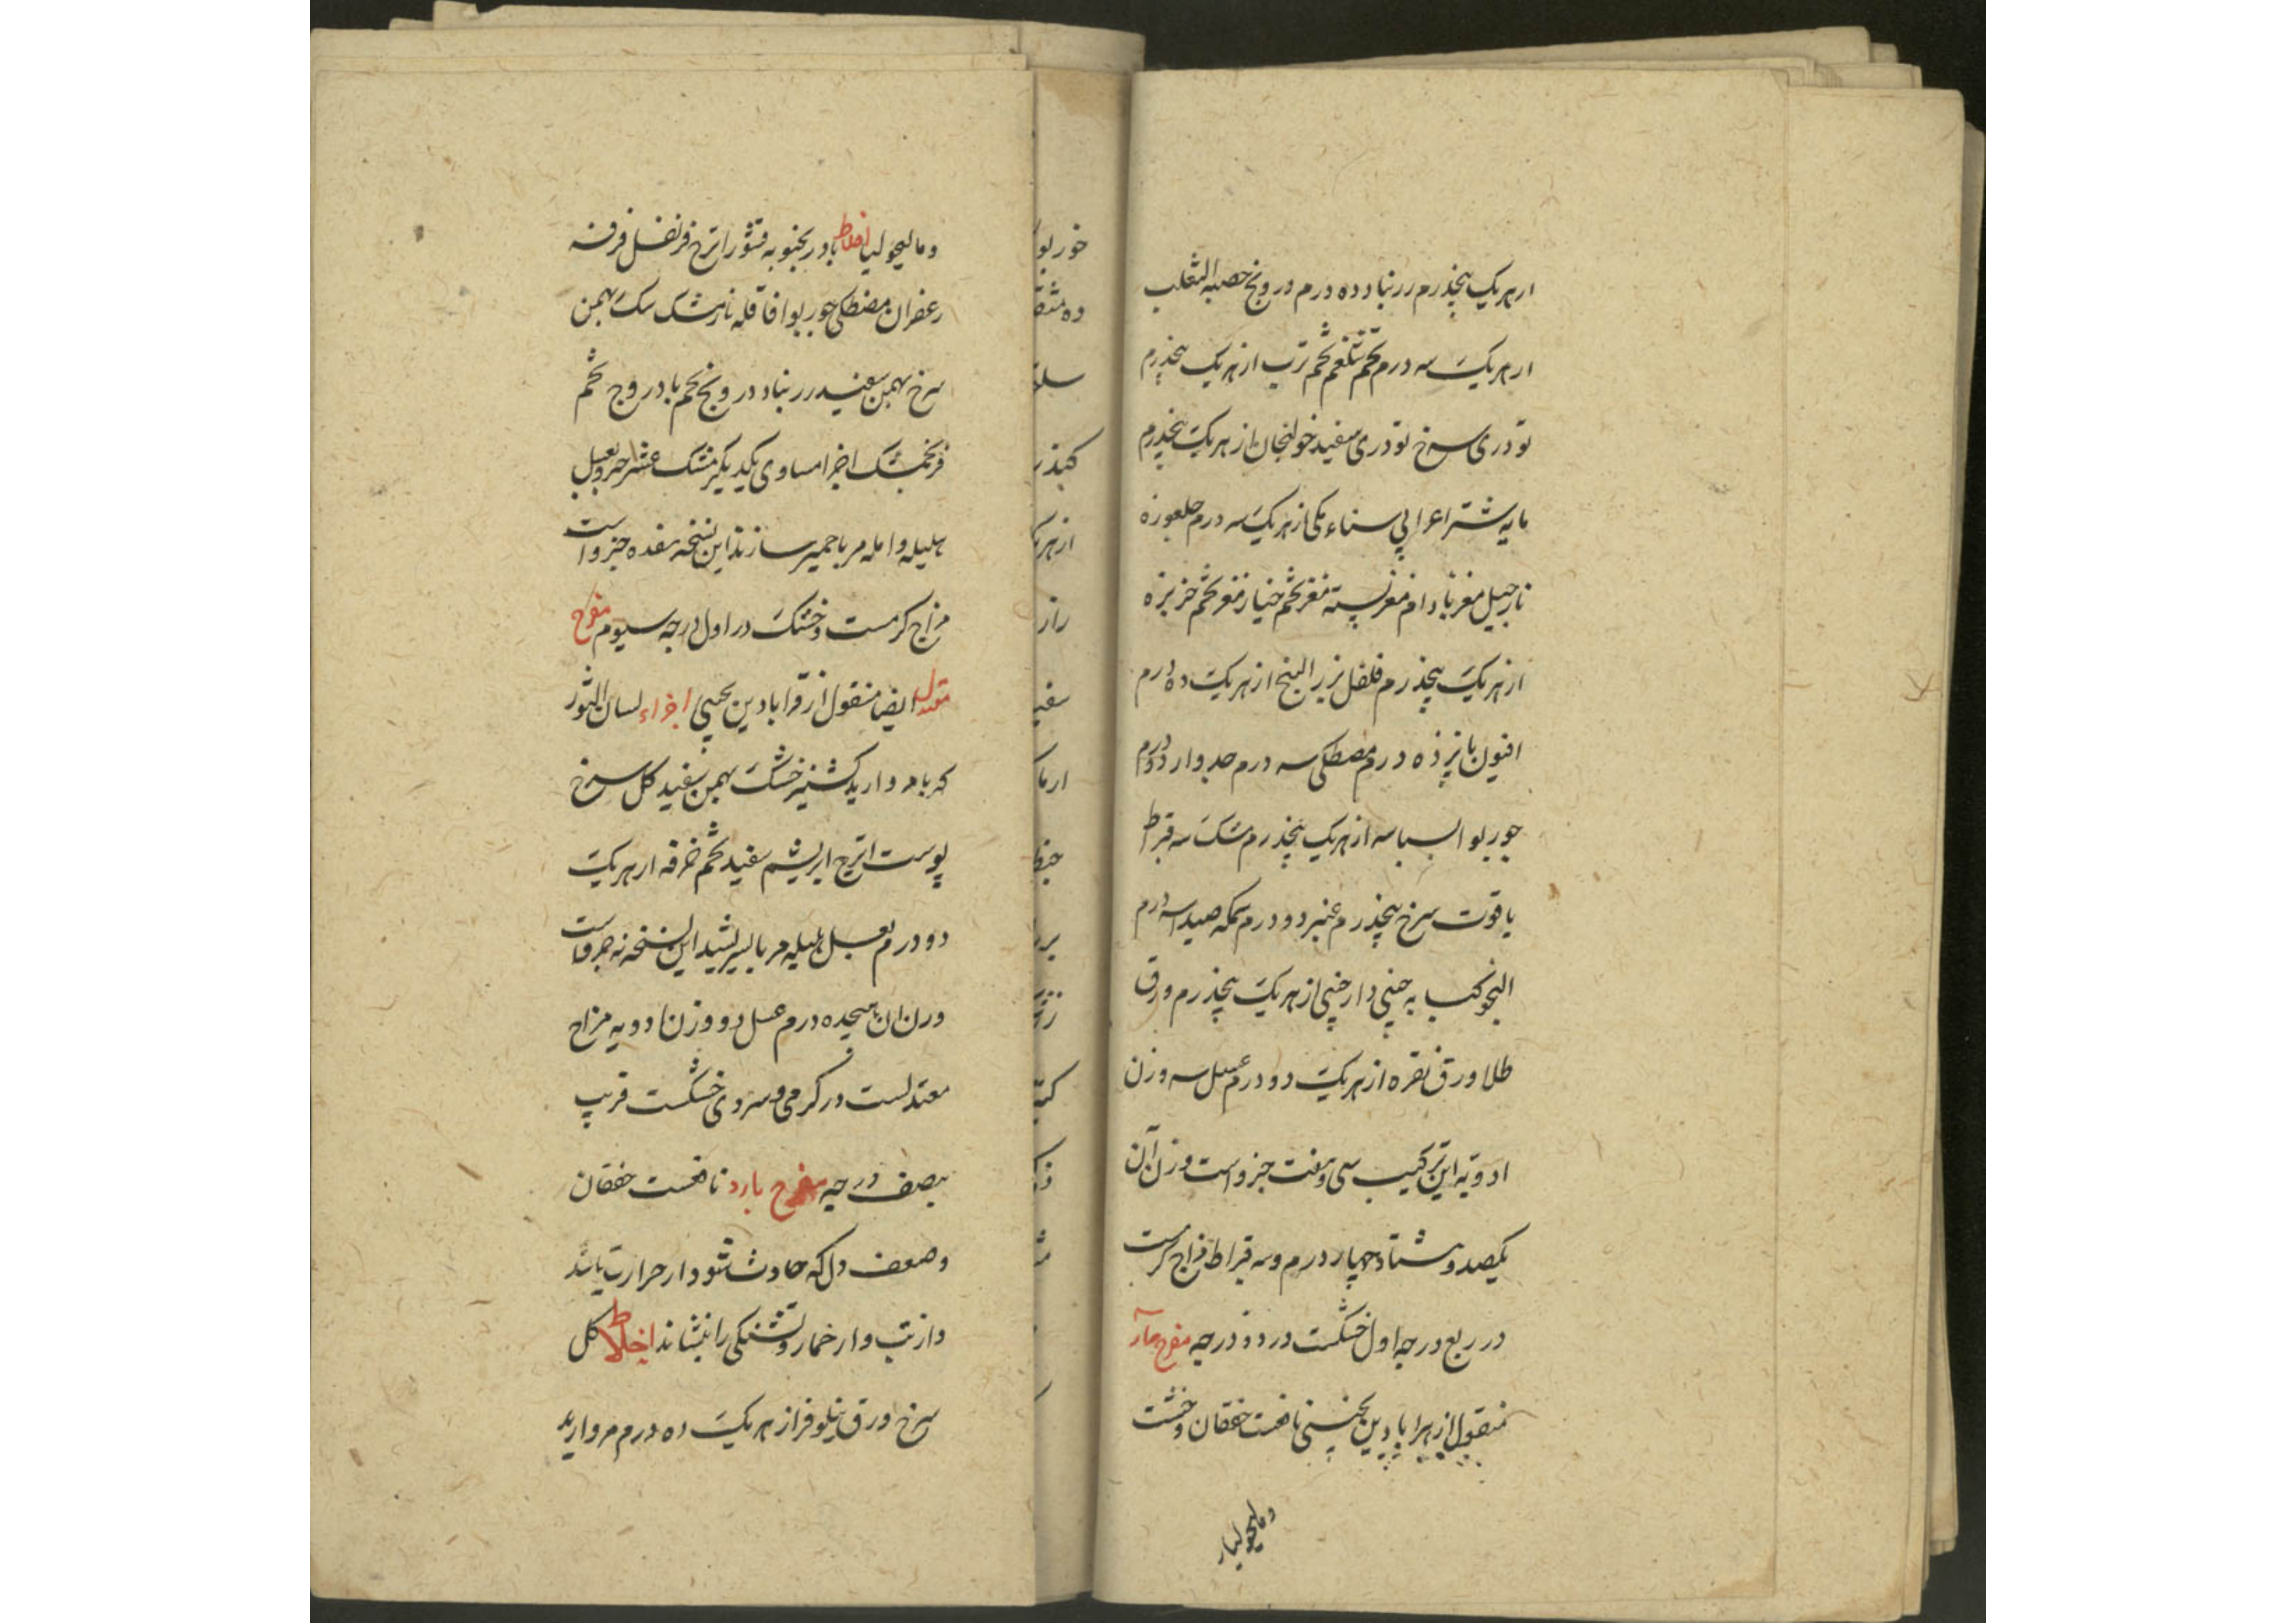 ازهریک پنجدرم زرنباد ده درم درونج خصیه الثعلب
ازهریک سه درم تخم شلغم تخم ترب ازهریک پنجدرم
تودری سرخ تودری سفید خولنجان ازهریک پنجدرم
مایه شتر اعرابی سناء مکی ازهریک سه درم جلغوزه
نارجیل مغز بادام مغز پسته مغز تخم خیار مغز تخم خربزه
ازهریک پنجدرم فلفل بزر البنج ازهریک ده درم
افیون پانزده درم مصطکی سه درم جدوار دو درم
جوربوا بسباسه ازهریک پنجدرم مشک سه قیراط
یاقوت سرخ پنجدرم عنبر دو درم سمکه صیدا سه درم
کبابه چینی دارچینی ازهریک پنجدرم ورق
طلا ورق نقره ازهریک دو درم عسل سه وزن
ادویه این ترکیب سی و هفت جزو است وزن آن
یکصد و هشتاد و چهار درم و سه قیراط مزاج گرمست
در ربع درجه اول خشکست در دو درجه مفرح حار
منقول از قرابادین نافعست خفقان وحشت
و مالیخولیا را
و مالیخولیا اخلاط بادرنجبویه قشور اترج قرنفل قرفه
زعفران مصطکی جوربوا قاقله نارمشک سک بهمن
سرخ بهمن سفید زرنباد درونج تخم بادروج تخم
فرنجمشک اجزا مساوی یکدیگر مشک عشر جزو بعسل
هلیله و امله مربا خمیر سازند این نسخه هفده جزو است
مزاج گرمست و خشک در اول درجه سیوم مفرح
معتدل ایضا منقول از قرابادین یحیی اجزاء لسان الثور
کهربا مروارید کشنیز خشک بهمن سفید گل سرخ
پوست اترج ابریشم سفید تخم خرفه ازهریک
دو درم بعسل هلیله مربا بسرشند این نسخه نه جزو است
وزن آن هیجده درم عسل دو وزن ادویه مزاج
معتدلست در گرمی و سردی خشکست قریب
بنصف درجه مفرح بارد نافعست خفقان
و ضعف دل که حادث شود از حرارت باشد
و از تب و از خمار و تشنگی را بنشاند اخلاط گل
سرخ ورق نیلوفر ازهریک ده درم مروارید